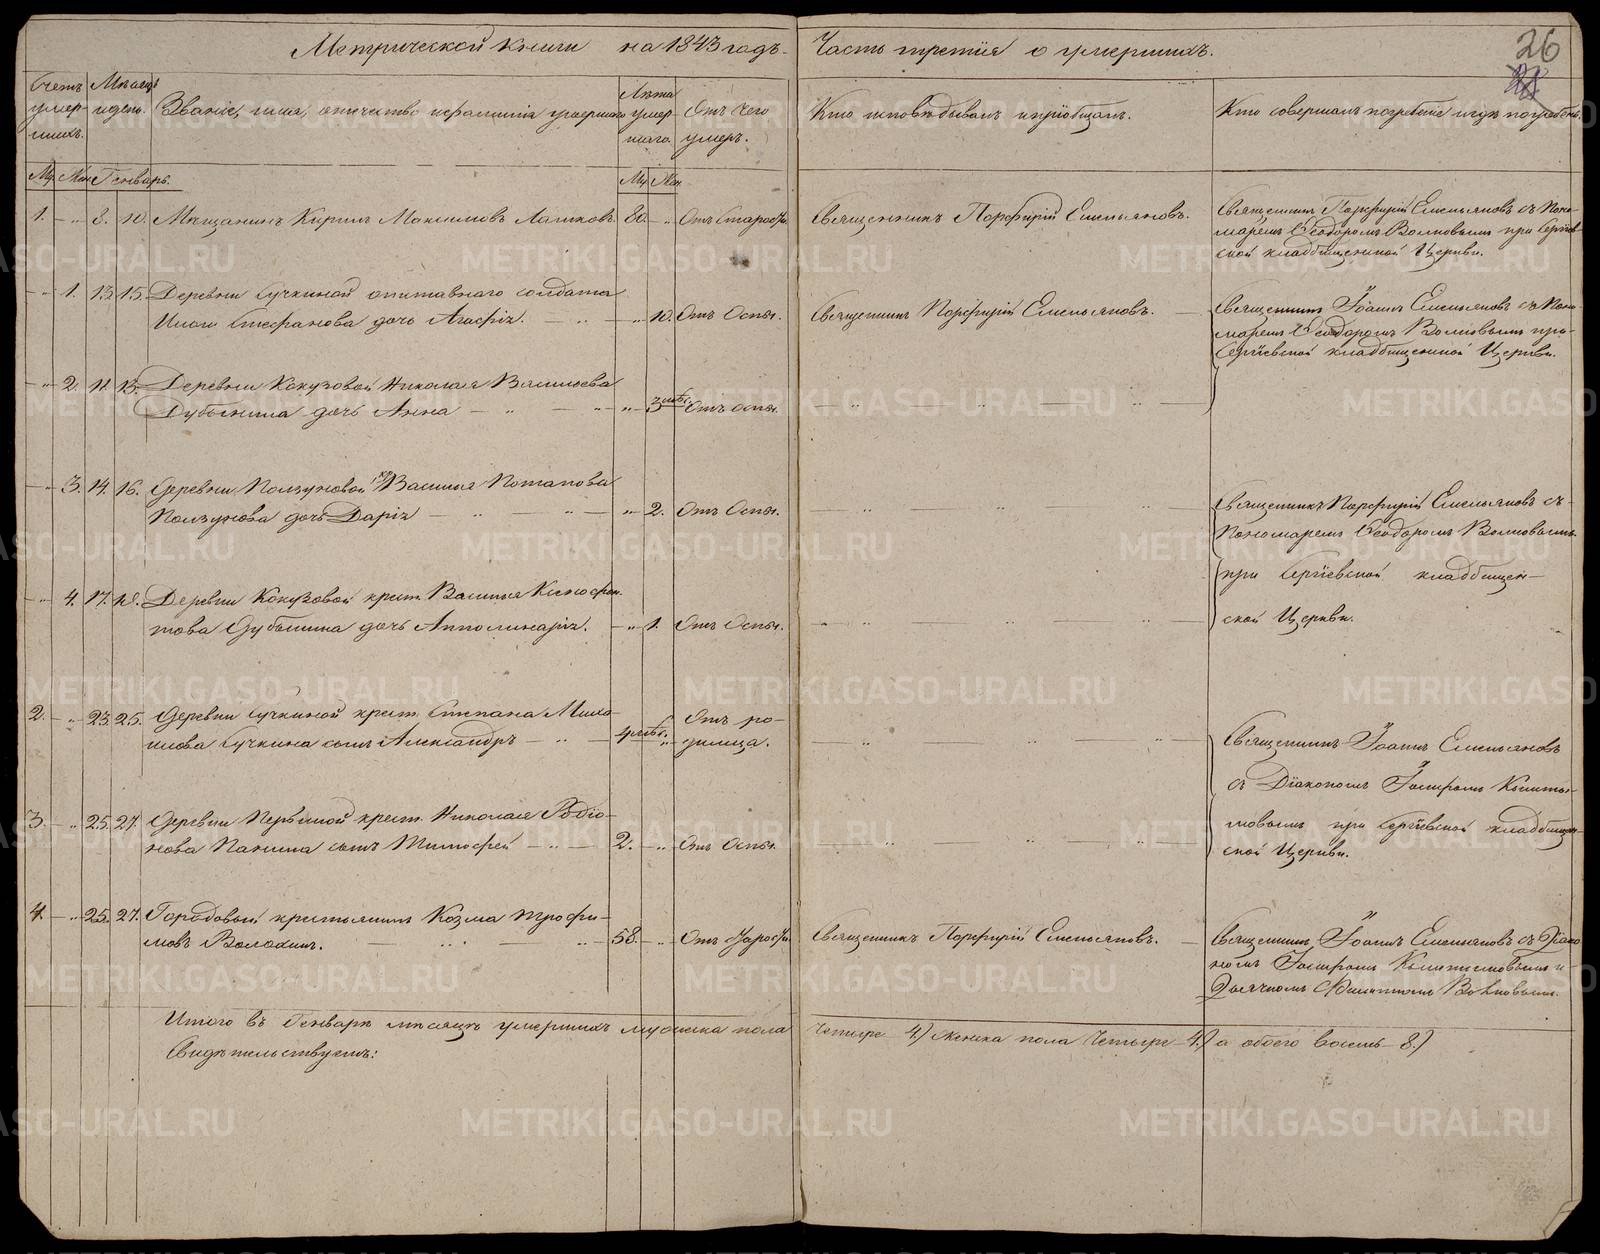 Метрической книги на 1843 годъ.
Часть третія о умершихъ.
26
Счетъ умер- шихъ.
Мѣсяцъ и день.
Званіе, имя, отчество и фамилія умершаго
Лѣта умер- шаго.
Отъ чего умеръ.
Кто исповѣдывалъ и пріобщалъ.
Кто совершалъ погребеніе и гдѣ погребенъ.
Му. Жен. Генварь.
Му. Жен.
1. - „ 8. 10. Мѣщанинъ Кирилъ Максимовъ 80. - „ Отъ Старос.
Священникъ Порфирій Емельяновъ.
Священникъ Порфирій Емельяновъ съ Поно-
маремъ Ѳеодоромъ Волковымъ при Сергіев-
ской кладбищенской Церкви.
- „ 1. 13. 15. Деревни Сучкиной солдата
Стефанова дочь Агафія. - „ 10. Отъ Оспы.
Священникъ Порфирій Емельяновъ.
Священникъ Іоаннъ Емельяновъ съ Поно-
маремъ Ѳеодоромъ Волковымъ при
Сергіевской кладбищенской Церкви.
- „ 2. 11. 13. Деревни Кокузовой Николая Васильева
Дубынина дочь Анна - „ - „ 3 мѣс. Отъ оспы.
- „ 3. 14. 16. Деревни Ползуновой кр. Василья Потапова
Ползунова дочь Дарія - „ - „ 2. Отъ Оспы.
Священникъ Порфирій Емельяновъ съ
Пономаремъ Ѳеодоромъ Волковымъ
при Сергіевской кладбищен-
ской Церкви.
- „ 4. 17. 18. Деревни Кокузовой крест. Василья Ксенофон-
това Дубынина дочь Апполинарія. - „ 1. Отъ Оспы.
2. - „ 23. 25. Деревни Сучкиной крест. Степана Миха-
илова Сучкина сынъ Александръ - „ - 4 мѣс. „ Отъ ро-
димца.
Священникъ Іоаннъ Емельяновъ
съ Діакономъ
при Сергіевской кладбищен-
ской Церкви.
3. - „ 25. 27. Деревни крест. Николая Родіо-
нова Панина сынъ Тимофей - „ - 2. - „ Отъ Оспы.
4. - „ 25. 27. Городовый крестьянинъ Козма Трофи-
мовъ Волохинъ. 58. - „ Отъ
Священникъ Порфирій Емельяновъ.
Священникъ Іоаннъ Емельяновъ съ Діако-
номъ и
Дьячкомъ Волковымъ.
Итого въ Генварѣ мѣсяцѣ умершихъ мужеска пола Четыре 4.) Женска пола Четыре 4.) а обоего восемь 8.)
Свидѣтельствуемъ:
METRIKI.GASO-URAL.RU